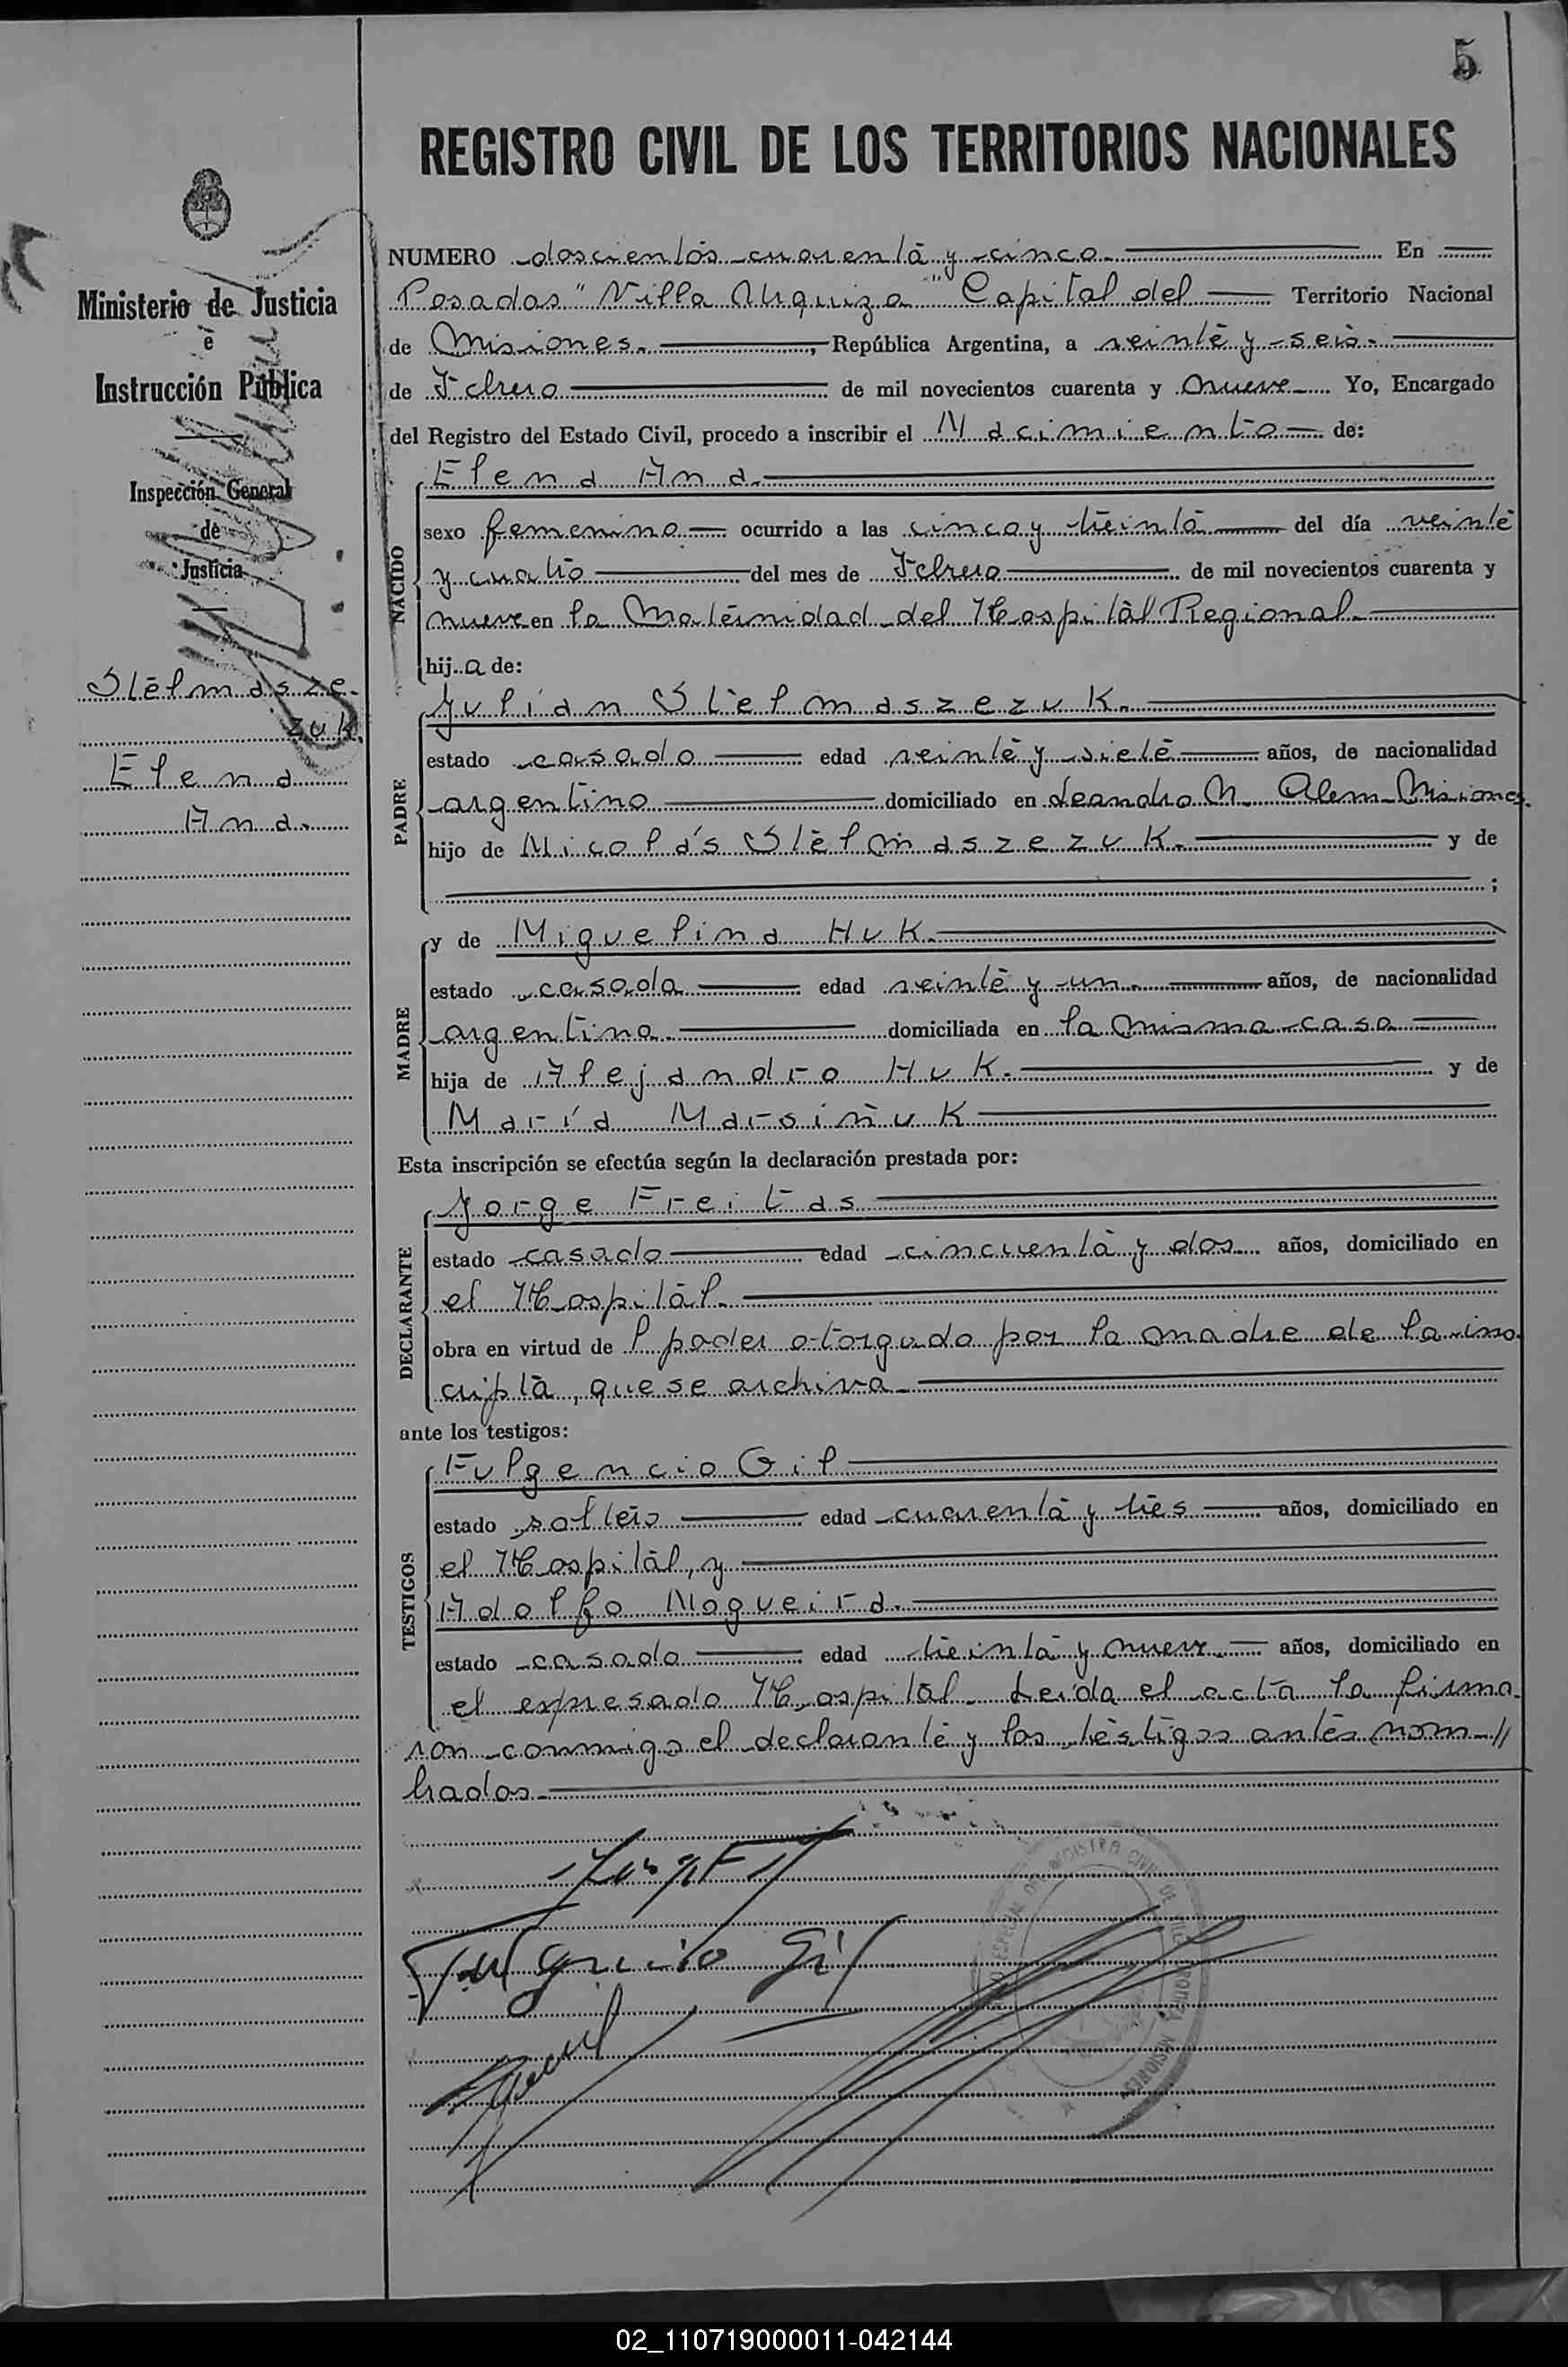 5
REGISTRO CIVIL DE LOS TERRITORIOS NACIONALES
Ministerio de Justicia
e
Instrucción Pública
Inspección General
de
Justicia
Stelmasze-
zuk
Elena
Ana.
NUMERO doscientos cuarenta y cinco. En
Posadas "Villa Urquiza" Capital del Territorio Nacional
de Misiones. , República Argentina, a veinte y seis.
de Febrero de mil novecientos cuarenta y nueve Yo, Encargado
del Registro del Estado Civil, procedo a inscribir el Nacimiento de:
NACIDO
Elena Ana.
sexo femenino ocurrido a las cinco y treinta del día veinte
y cuatro del mes de Febrero de mil novecientos cuarenta y
nueve en la Maternidad del Hospital Regional.
hij a de:
PADRE
Julián Stelmaszezuk.
estado casado edad veinte y siete años, de nacionalidad
argentino domiciliado en Leandro N. Alem-Misiones.
hijo de Nicolás Stelmaszezuk. y de
;
MADRE
y de Miguelina Huk.
estado casada edad veinte y un. años, de nacionalidad
argentina. domiciliada en la misma casa
hija de Alejandro Huk. y de
María Marsiñuk
Esta inscripción se efectúa según la declaración prestada por:
DECLARANTE
Jorge Freitas
estado casado edad cincuenta y dos años, domiciliado en
el Hospital.
obra en virtud de l poder otorgado por la madre de la ins-
cripta, que se archiva.
ante los testigos:
TESTIGOS
Fulgencio Gil
estado soltero edad cuarenta y tres años, domiciliado en
el Hospital, y
Adolfo Nogueira.
estado casado edad treinta y nueve años, domiciliado en
el expresado Hospital. Leída el acta la firma-
ron conmigo el declarante y los testigos antes nom-//
brados.
Fulgencio Gil
REGISTRO CIVIL DE VILLA URQUIZA MISIONES
02_110719000011-042144